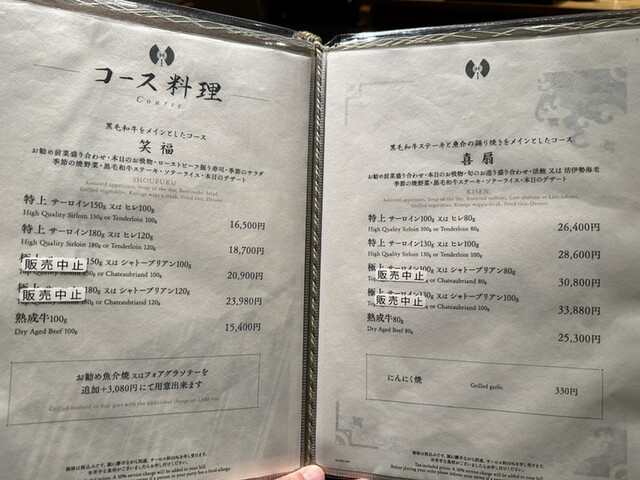 コース料理
Course
黒毛和牛をメインとしたコース
笑福
お勧め前菜盛り合わせ・本日のお吸物・ローストビーフ握り寿司・季節のサラダ
季節の焼野菜・黒毛和牛ステーキ・ソテーライス・本日のデザート
SHOUFUKU
特上 サーロイン150g 又は ヒレ100g
High Quality Sirloin 150g or Tenderloin 100g
16,500円
特上 サーロイン180g 又は ヒレ120g
High Quality Sirloin 180g or Tenderloin 120g
18,700円
販売中止
150g 又は シャトーブリアン100g
or Chateaubriand 100g
20,900円
販売中止
180g 又は シャトーブリアン120g
180g or Chateaubriand 120g
23,980円
熟成牛100g
Dry Aged Beef 100g
15,400円
お勧め魚介焼 又はフォアグラソテーを
追加+3,080円にて用意出来ます
黒毛和牛ステーキと魚介の踊り焼きをメインとしたコース
喜扇
お勧め前菜盛り合わせ・本日のお吸物・旬のお造り盛り合わせ・活鮑 又は 活伊勢海老
季節の焼野菜・黒毛和牛ステーキ・ソテーライス・本日のデザート
KISEN
特上 サーロイン100g 又は ヒレ80g
High Quality Sirloin 100g or Tenderloin 80g
26,400円
特上 サーロイン130g 又は ヒレ100g
High Quality Sirloin 130g or Tenderloin 100g
28,600円
又は シャトーブリアン80g
販売中止
or Chateaubriand 80g
30,800円
又は シャトーブリアン100g
販売中止
or Chateaubriand 100g
33,880円
熟成牛80g
Dry Aged Beef 80g
25,300円
にんにく焼
Grilled garlic
330円